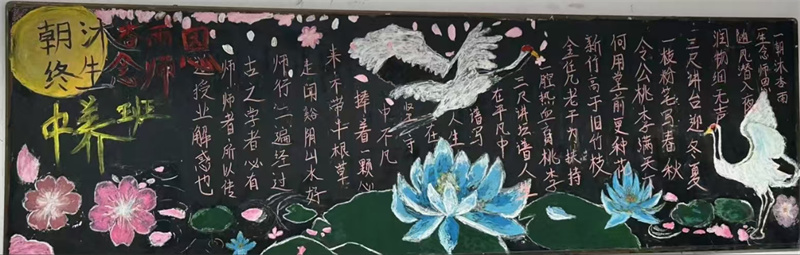 朝沐杏雨
终生念师恩
中养班
一朝沐杏雨
一生念师恩
随风潜入夜
润物细无声
三尺讲台迎冬夏
一枝粉笔写春秋
令公桃李满天下
何用堂前更种花
新竹高于旧竹枝
全凭老干为扶持
一腔热血育桃李
三尺讲坛谱人生
在平凡中
谱写
人生
在
坚守
中不凡
捧着一颗心
来不带半根草
山水好
师行一遍经过
古之学者必有
师师者所以传
道授业解惑也